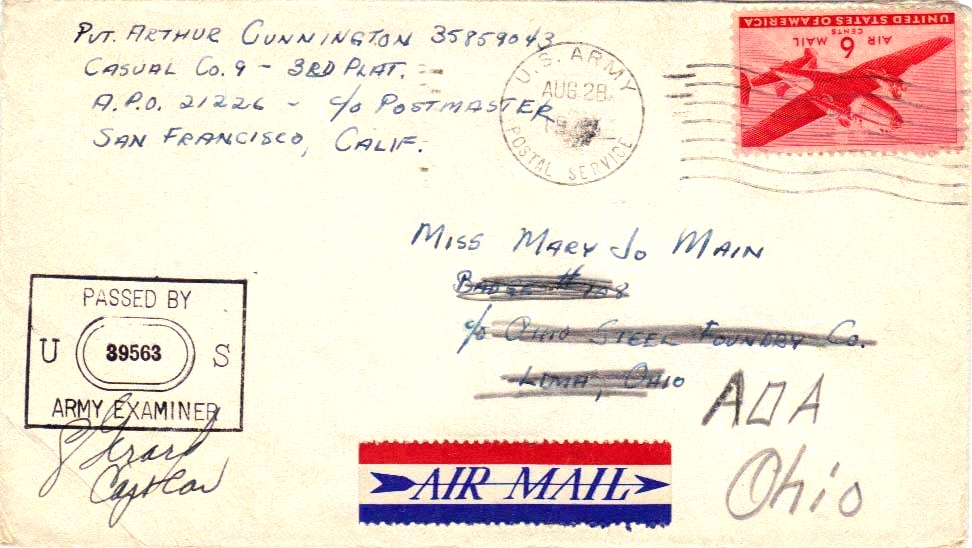 Pvt. Arthur Gunnington 35859043
Casual Co. 9 - 3rd Plat.
A.P.O. 21226 - c/o Postmaster
San Francisco, Calif.
U.S. ARMY
AUG 28
POSTAL SERVICE
UNITED STATES OF AMERICA
6 CENTS
AIR MAIL
Miss Mary Jo Main
Badge # 108
c/o Ohio Steel Foundry Co.
Lima, Ohio
PASSED BY
U 39563 S
ARMY EXAMINER
ADA
Ohio
AIR MAIL